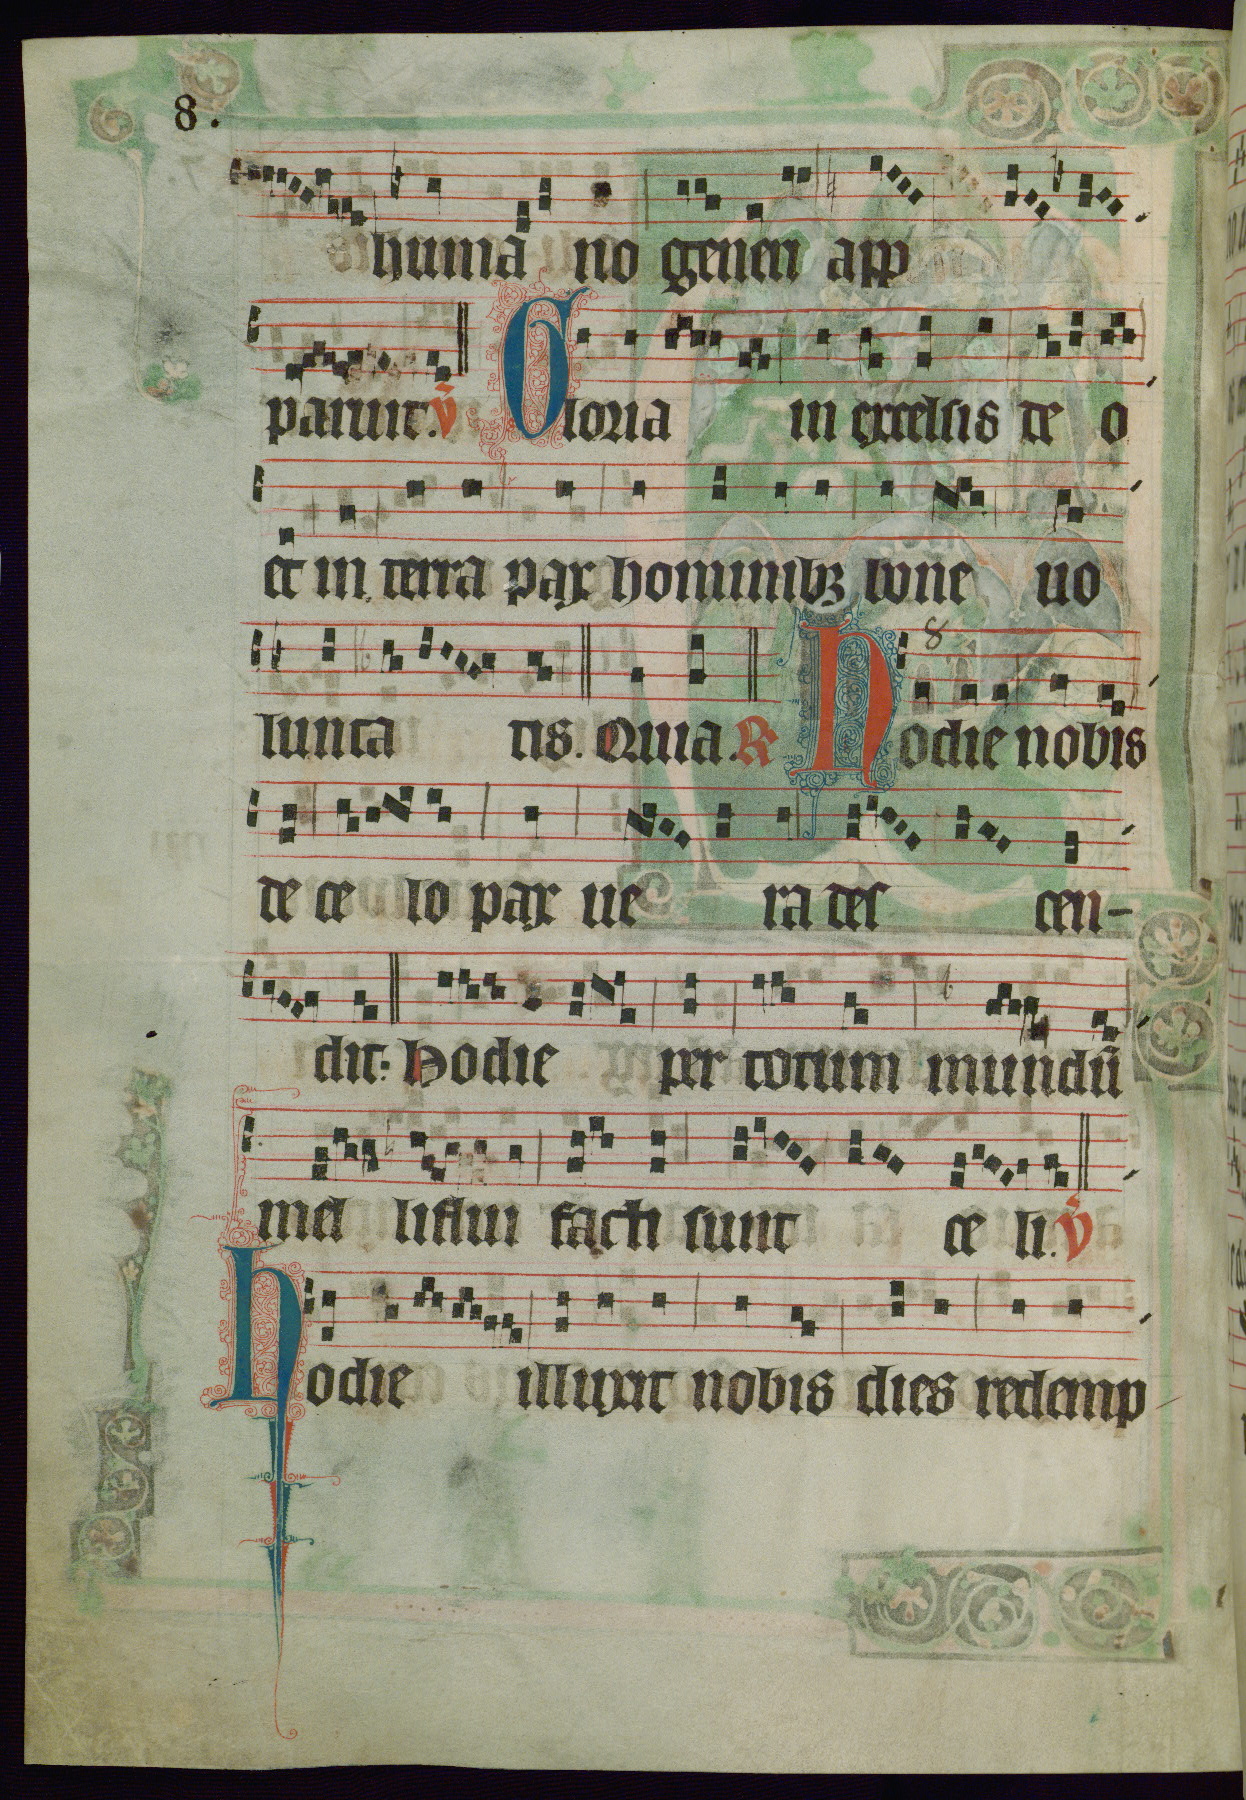 8.
huma no generi app
paruit. v̄ Gloria in excelsis de o
et in terra pax hominibꝫ bone uo
lunta tis. Quia. R Hodie nobis
8
de ce lo pax ue ra des cen-
dit: Hodie per totum mundū
mel liflui facti sunt ce li. v̄
Hodie illuxit nobis dies redemp